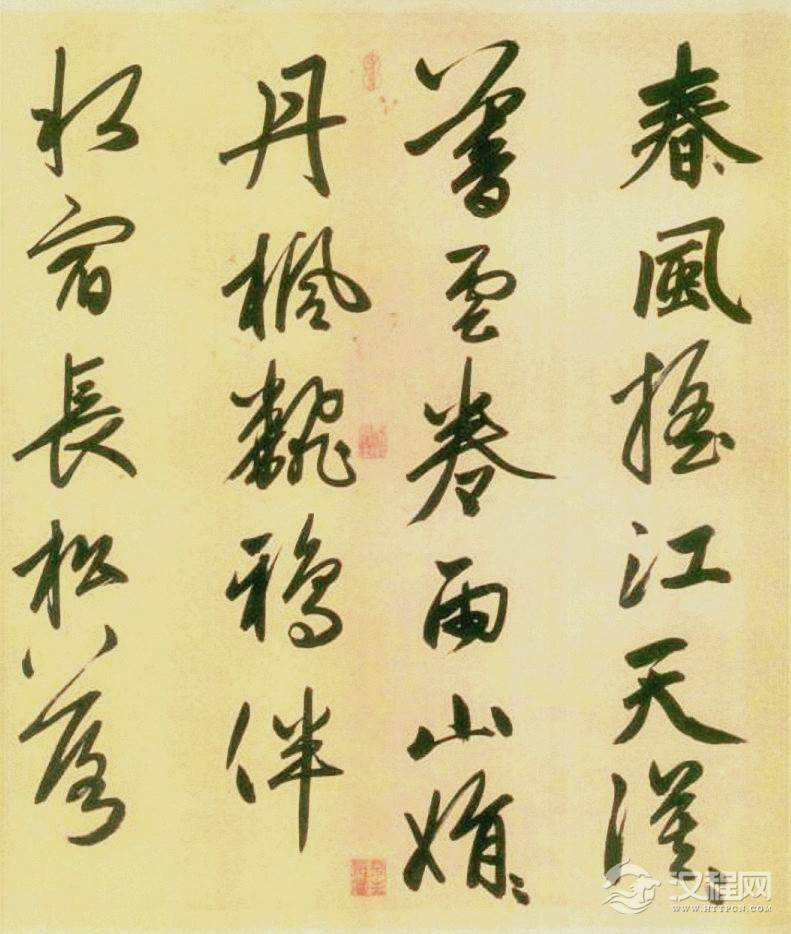 春風搖江天漠〻
暮雲卷雨山娟〻
丹楓翻鴉伴
水宿長松落
汉程网
WWW.HTTPCN.COM